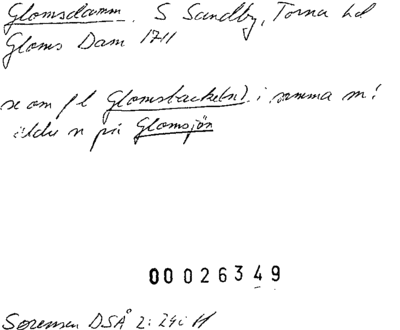 Glomsdamm. S Sandby, Torna hd
Gloms Dam 1711
se om fl Glomsbacke(n). i samma m!
äldre n på Glomsjön
00 026349
Sørensen DSÅ 2: